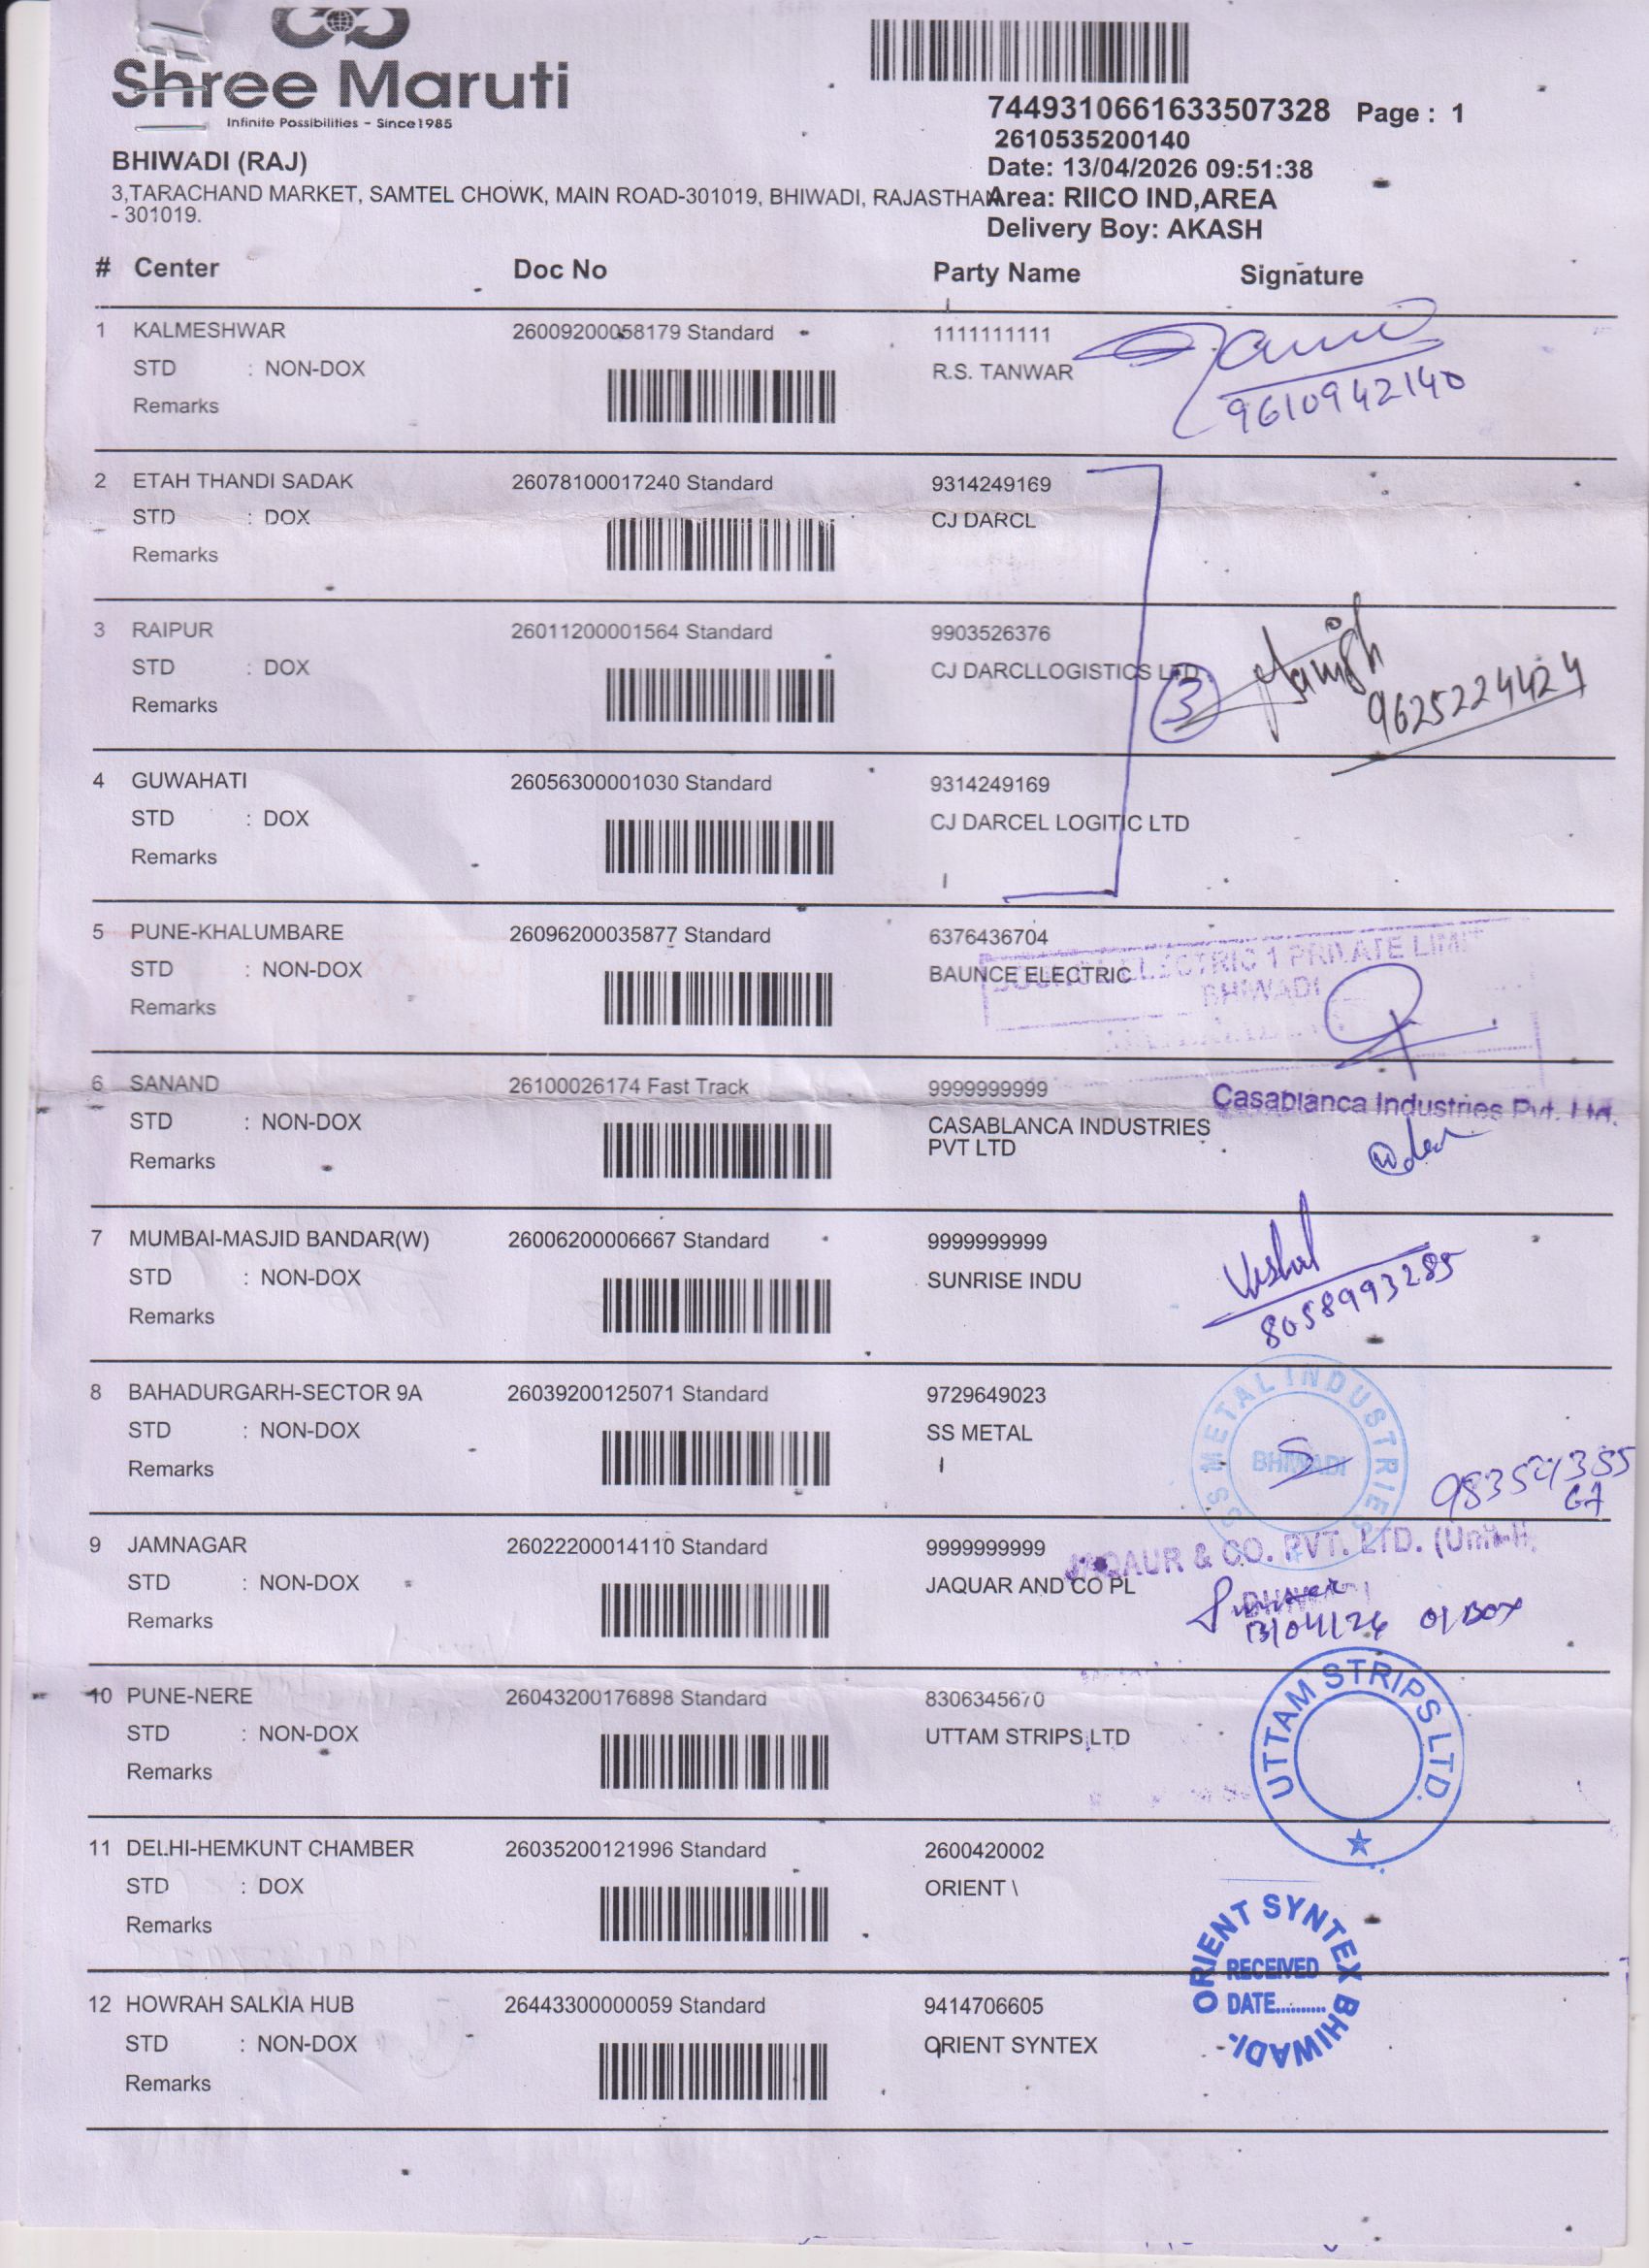 Shree Maruti
Infinite Possibilities - Since1985
7449310661633507328 Page : 1
2610535200140
BHIWADI (RAJ)
Date: 13/04/2026 09:51:38
3,TARACHAND MARKET, SAMTEL CHOWK, MAIN ROAD-301019, BHIWADI, RAJASTHAN
- 301019.
Area: RIICO IND,AREA
Delivery Boy: AKASH
# Center Doc No Party Name Signature
1 KALMESHWAR 26009200058179 Standard 1111111111
STD : NON-DOX R.S. TANWAR
9610942140
Remarks
2 ETAH THANDI SADAK 26078100017240 Standard 9314249169
STD : DOX CJ DARCL
Remarks
3 RAIPUR 26011200001564 Standard 9903526376
STD : DOX CJ DARCLLOGISTICS LTD
3 9625224424
Remarks
4 GUWAHATI 26056300001030 Standard 9314249169
STD : DOX CJ DARCEL LOGITIC LTD
Remarks
5 PUNE-KHALUMBARE 26096200035877 Standard 6376436704
ELECTRIC 1 PRIVATE LIMIT
STD : NON-DOX BAUNCE ELECTRIC
BHIWADI
Remarks
6 SANAND 26100026174 Fast Track 9999999999
Casablanca Industries Pvt. Ltd.
STD : NON-DOX CASABLANCA INDUSTRIES
PVT LTD
Remarks
7 MUMBAI-MASJID BANDAR(W) 26006200006667 Standard 9999999999
STD : NON-DOX SUNRISE INDU
Vishal
8058993285
Remarks
8 BAHADURGARH-SECTOR 9A 26039200125071 Standard 9729649023
STD : NON-DOX SS METAL
SS METAL INDUSTRIES
BHIWADI
Remarks
9 JAMNAGAR 26022200014110 Standard 9999999999
JAQAUR & CO. PVT. LTD. (Unit-II)
STD : NON-DOX JAQUAR AND CO PL
13/04/26 01 BOX
Remarks
10 PUNE-NERE 26043200176898 Standard 8306345670
STD : NON-DOX UTTAM STRIPS LTD
UTTAM STRIPS LTD.
Remarks
11 DELHI-HEMKUNT CHAMBER 26035200121996 Standard 2600420002
STD : DOX ORIENT \
Remarks
ORIENT SYNTEX BHIWADI
RECEIVED
DATE..........
12 HOWRAH SALKIA HUB 26443300000059 Standard 9414706605
STD : NON-DOX ORIENT SYNTEX
Remarks